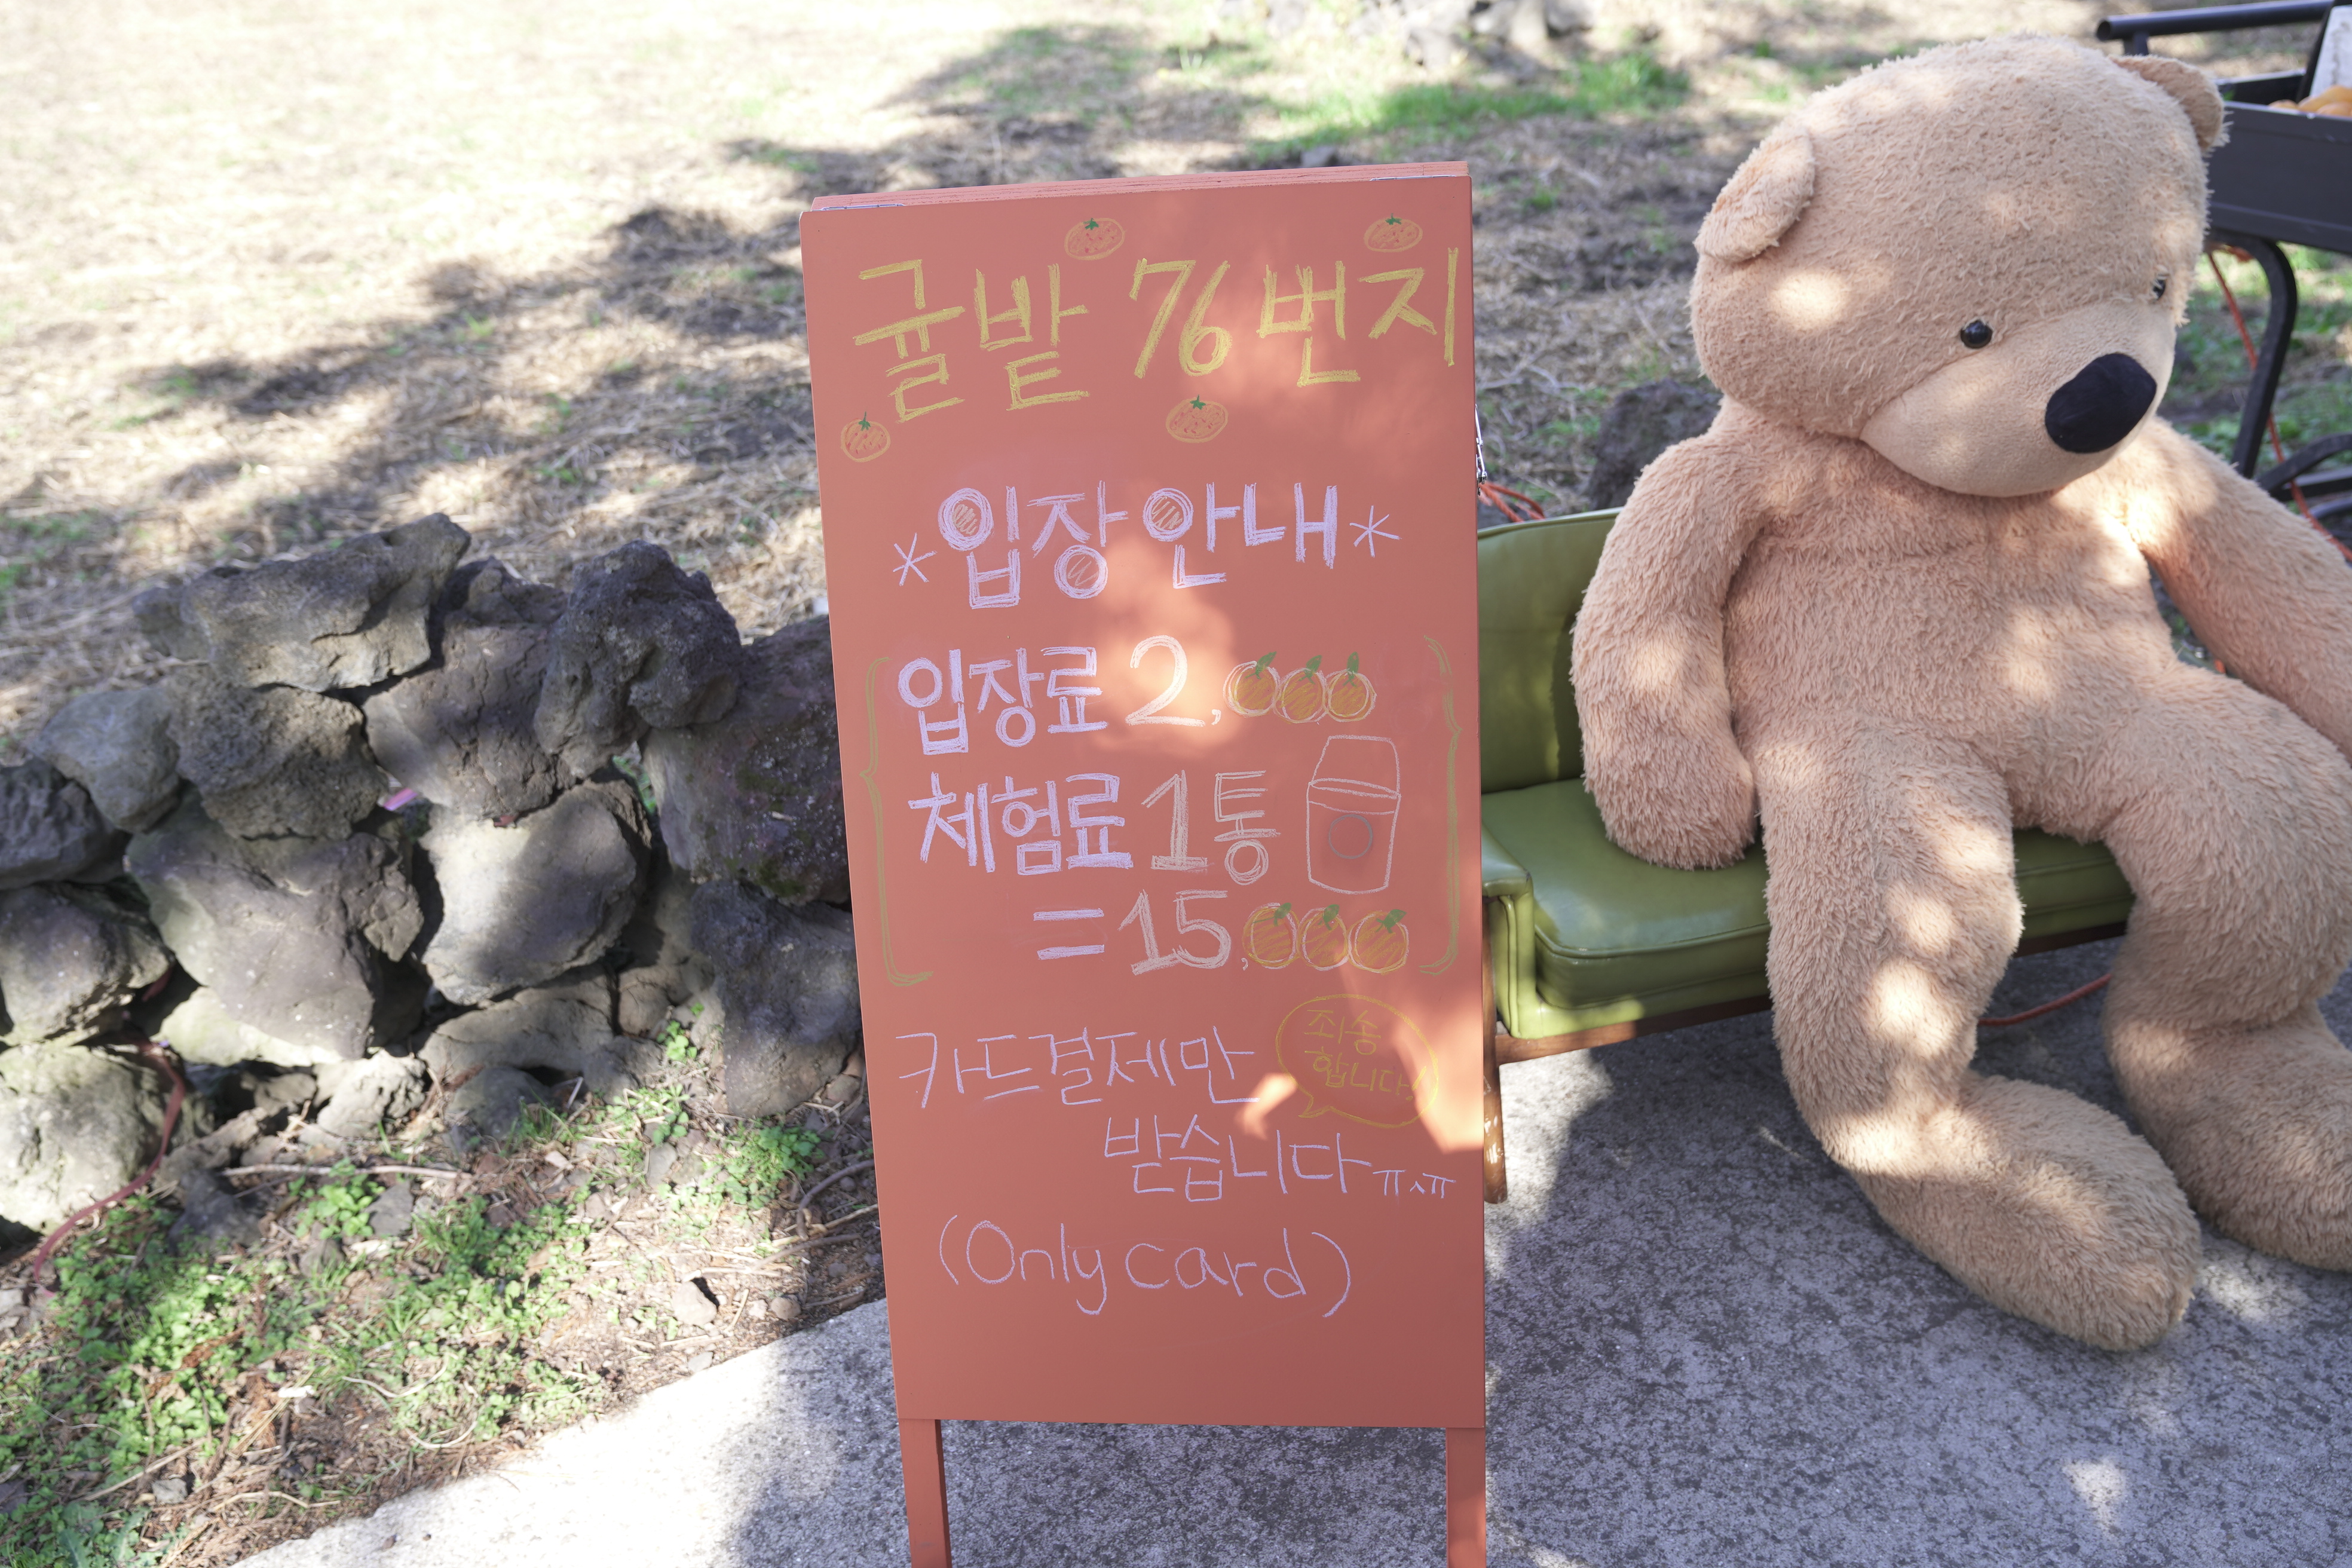 귤밭 76번지
*입장 안내*
입장료 2,000
체험료 1통
=15,000
카드결제만
죄송
합니다!
받습니다ㅠㅅㅠ
(Only card)